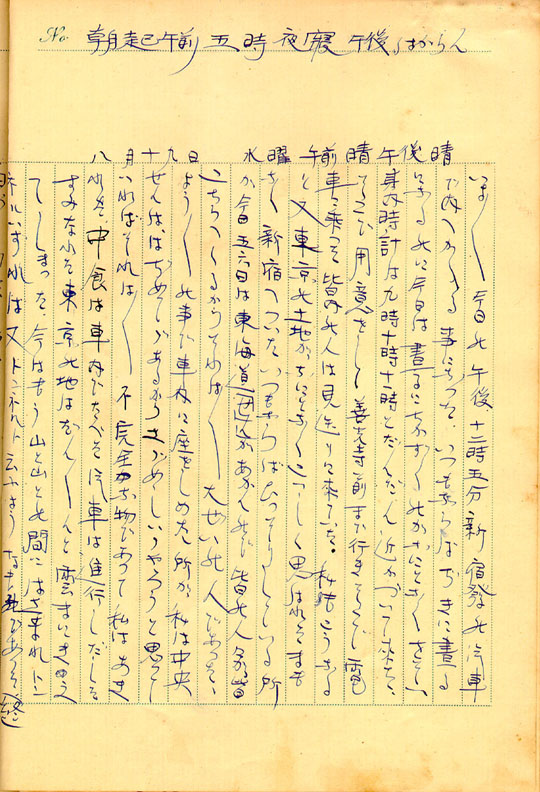 No. 朝起午前五時夜寝午後わからん
八月十九日 水曜 午前晴 午後晴
いよ〱今日の午後十二時五分新宿發の汽車
で内へかへる事になつた、いつもならばぢきに晝る
になるのに今日は晝るにちかずくのがなにとなくおそい
其内時計は九時十時十一時とだんだん近かづいて来た、
そこで用意をして善光寺前まで行きそこで電
車に乗つた皆の人は見送りに来ていた。私はもうなる
と又東京の土地がなにとなくこいしく思はれたまも
なく新宿へついたいつもならばひつそりしている所
が今日五六日は東海道があかんので皆の人々が皆
こちらへくるからそれは〱大せいの人であつた、
よう〱の事で車内に座をしめた所が私は中央
せんははぢめてであるからさぞ いゝやろうと思つて
いればそれは〱不完全な物であつて私はあき
れた、中食は車内でたべた汽車は進行しだした
すみなれた東京の地はだん〱と雲まにきえ
てしまつた、今はもう山と山との間にはさまれトン
ネルいずれば又トンネルト云ふよう